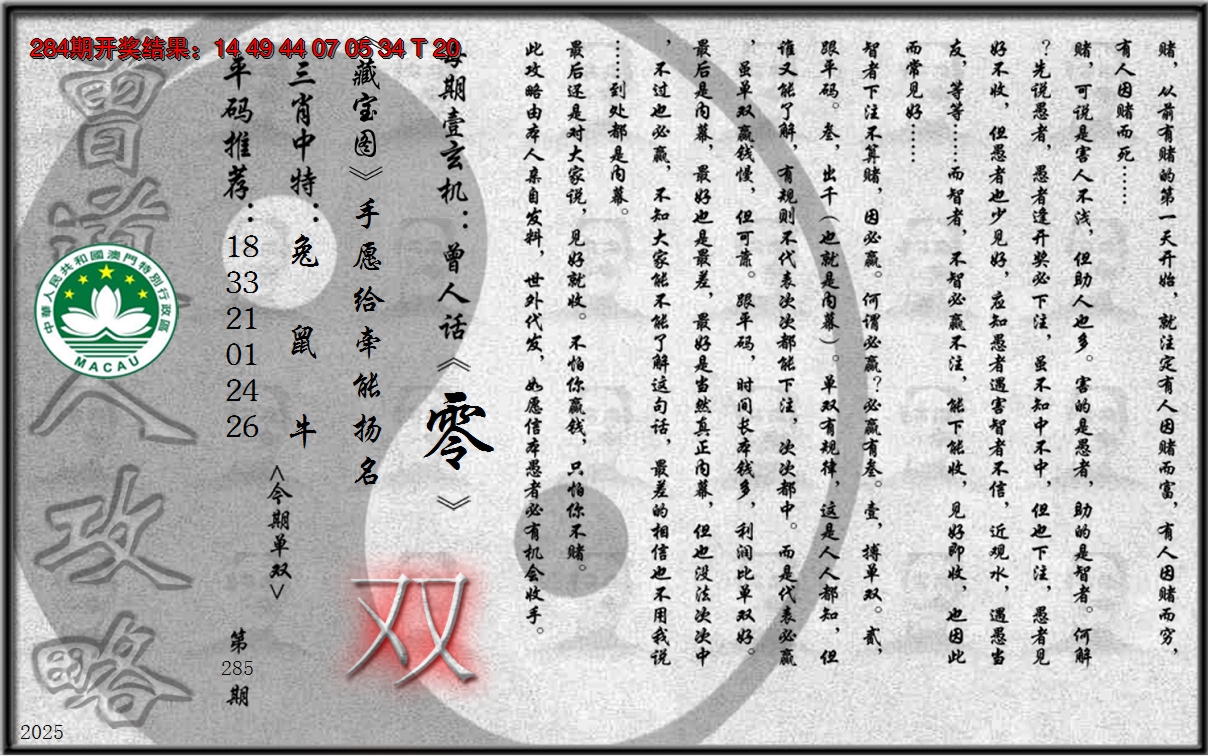 284期开奖结果：14 49 44 07 05 34 T 20
赌，从前有赌的第一天开始，就注定有人因赌而富，有人因赌而穷，
有人因赌而死……
赌，可说是害人不浅，但助人也多。害的是愚者，助的是智者。何解
？先说愚者，愚者逢开奖必下注，虽不知中不中，但也下注，愚者见
好不收，但愚者也少见好，应知愚者遇害智者不信，近观水，遇愚当
友，等等……而智者，不智必赢不注，能下能收，见好即收，也因此
而常见好……
智者下注不算赌，因必赢。何谓必赢？必赢有叁。壹，搏单双。贰，
跟平码。叁，出千（也就是内幕）。单双有规律，这是人人都知，但
谁又能了解，有规则不代表次次都能下注，次次都中。而是代表必赢
，虽单双赢钱慢，但可靠。跟平码，时间长本钱多，利润比单双好。
最后是内幕，最好也是最差，最好是当然真正内幕，但也没法次次中
，不过也必赢，不知大家能不能了解这句话，最差的相信也不用我说
……到处都是内幕。
最后还是对大家说，见好就收。不怕你赢钱，只怕你不赌。
此攻略由本人亲自发料，世外代发，如愿信本愚者必有机会收手。
每期壹玄机：曾人话《零》
《藏宝图》手愿给牵能扬名
双
三肖中特：兔 鼠 牛
<今期单双>
平码推荐：18 33 21 01 24 26
第285期
曾道人攻略
中華人民共和國澳門特別行政區
MACAU
2025